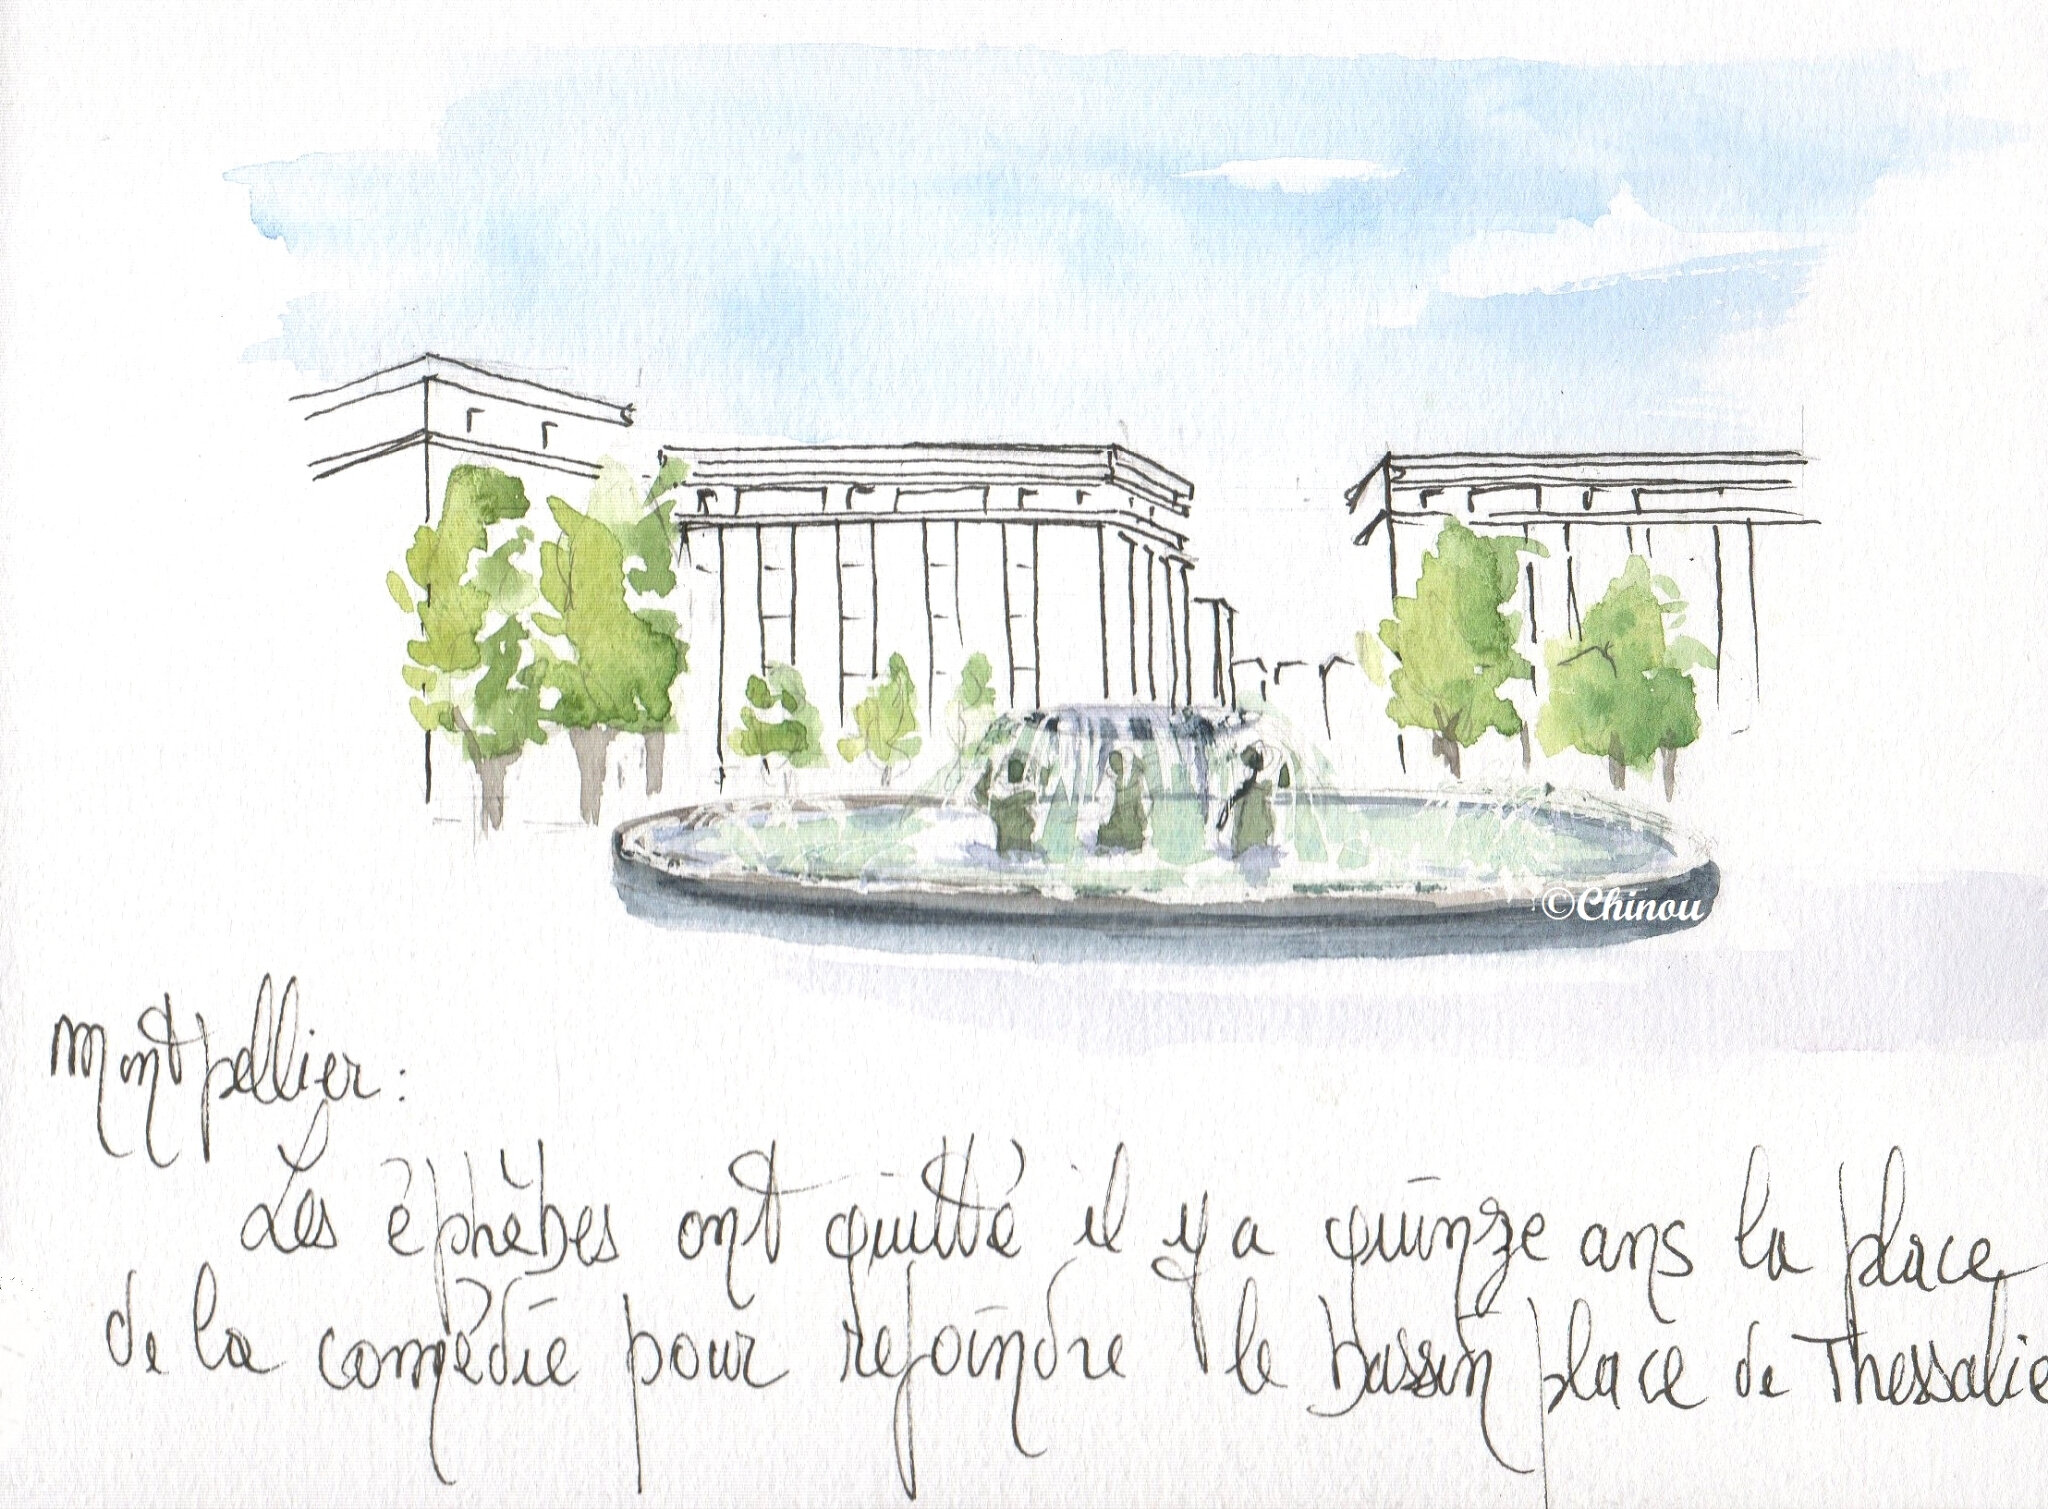 ©Chinou
Montpellier :
Les éphèbes ont quitté il y a quinze ans la place
de la comédie pour rejoindre le bassin place de Thessalie